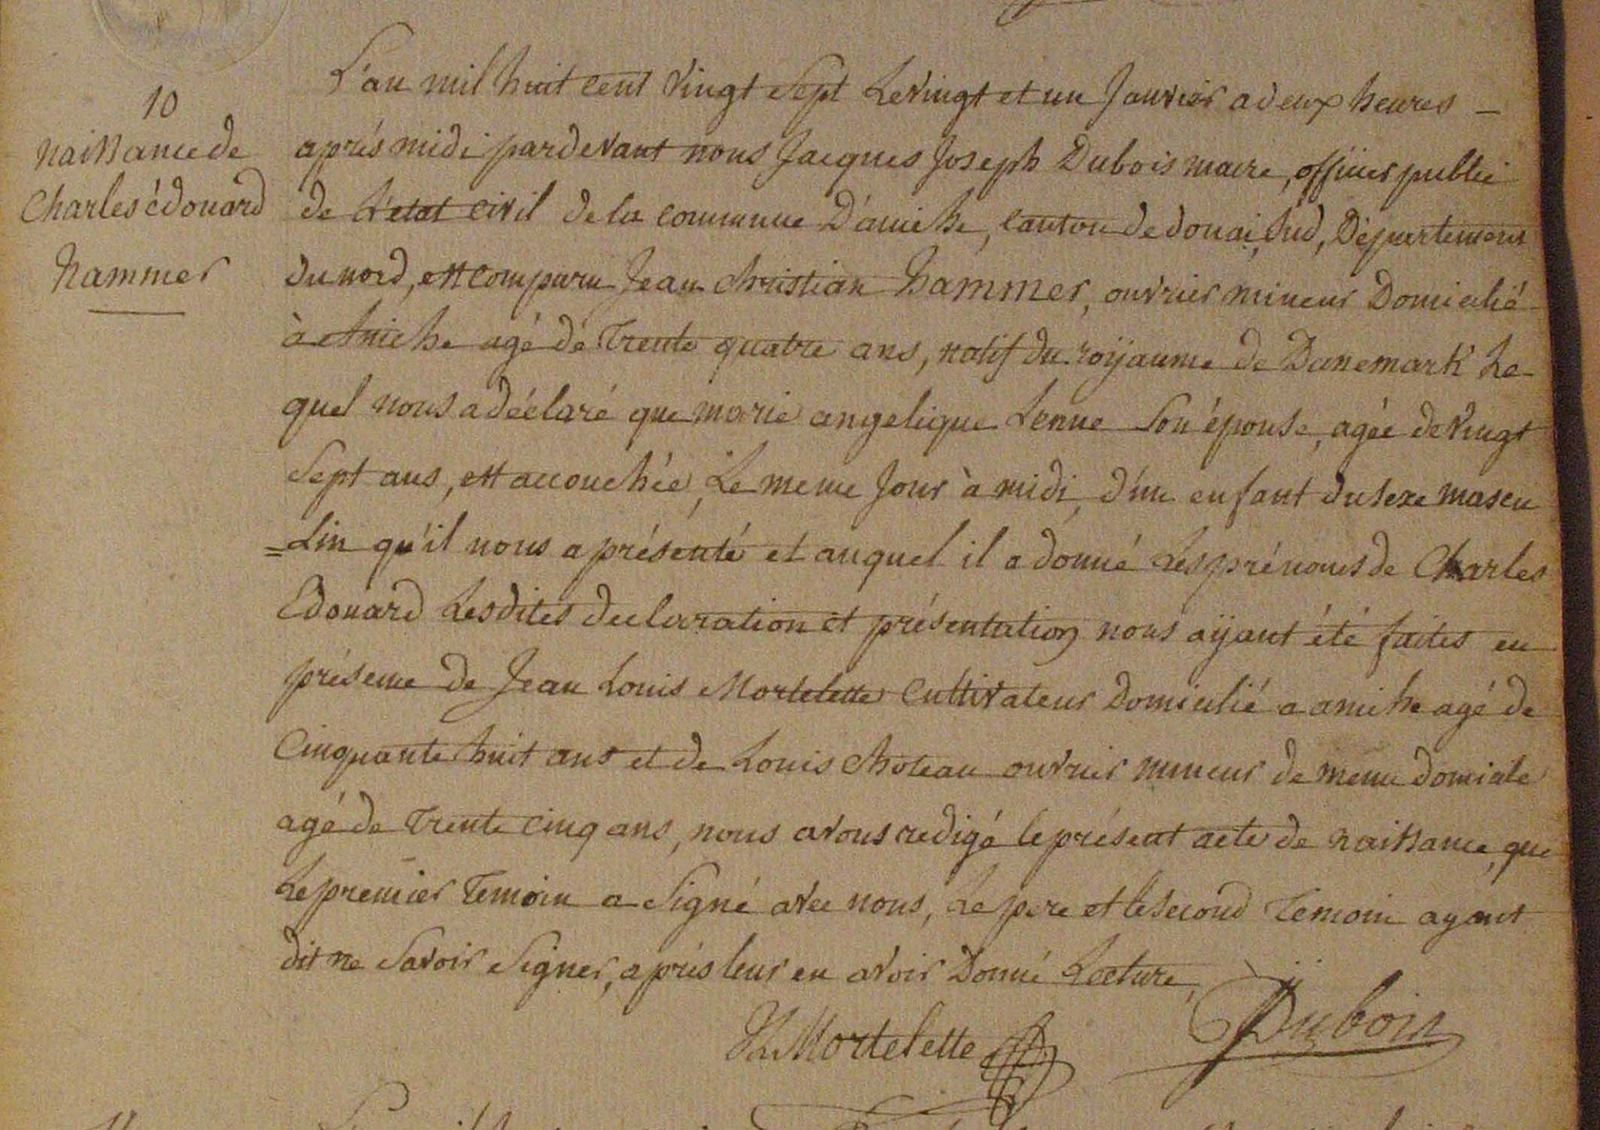 10
naissance de
Charles édouard
hammer
L'an mil huit cent vingt sept Le vingt et un Janvier a deux heures
aprés midi pardevant nous Jacques Joseph Dubois maire, officier public
de L'etat civil de la commune D'aniche, canton de douai, Sud, Département
du nord, est comparu Jean christian hammer, ouvrier mineur Domicilié
à Aniche agé de Trente quatre ans, natif du royaume de Danemark Le-
quel nous a déclaré que marie angelique Lenne Son épouse, agée de vingt
Sept ans, est accouchée, Le meme Jour à midi, d'un enfant du sexe mascu
=Lin qu'il nous a présenté et auquel il a donné Les prénoms de Charles
Edouard Lesdites declaration et présentation nous aÿant été faites en
présence de Jean Louis Mortelette Cultivateur Domicilié a aniche agé de
Cinquante huit ans et de Louis choteau ouvrier mineur de meme domicile
agé de Trente cinq ans, nous avons redigé le présent acte de naissance, que
Le premier Temoin a Signé avec nous, Le pere et le second Temoin ayant
dit ne Savoir Signer, aprés leur en avoir Donné Lecture,
JLMortelette
Dubois